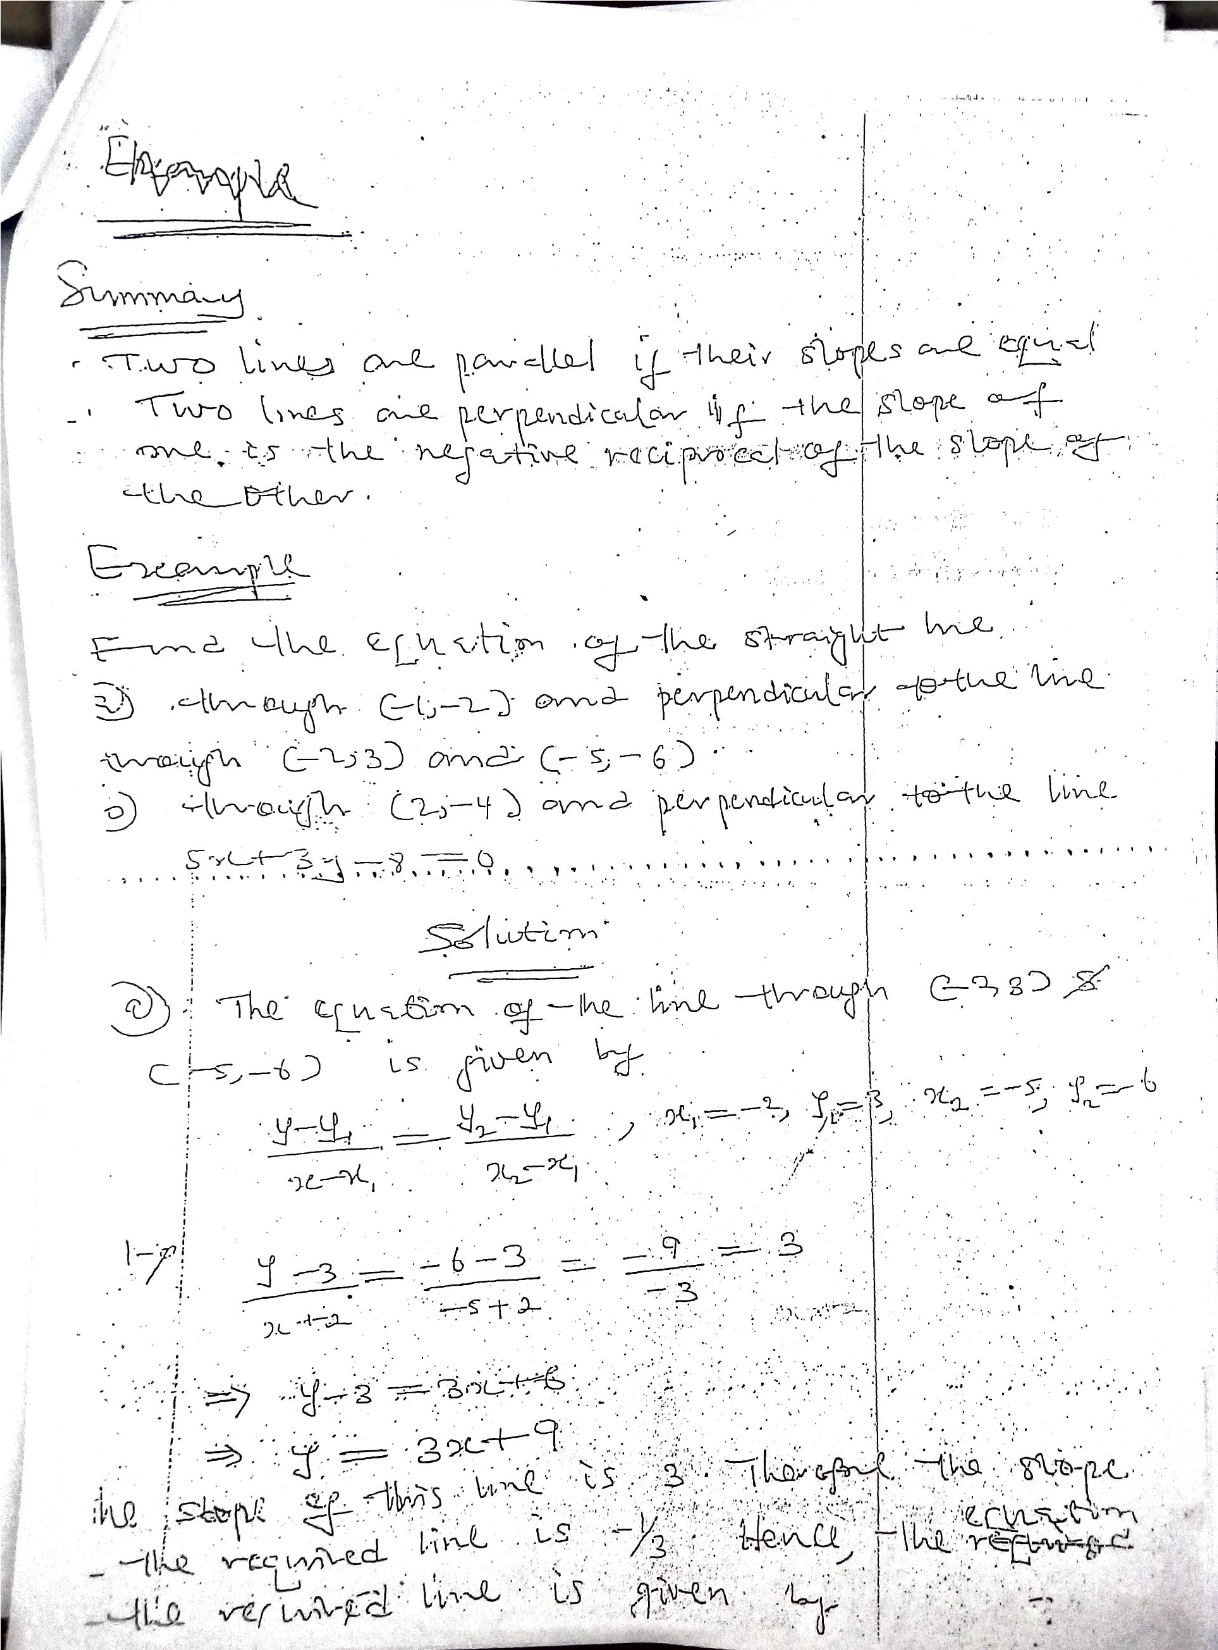 Example
Summary
. Two lines are parallel if their slopes are equal
. Two lines are perpendicular if the slope of
one is the negative reciprocal of the slope of
the other.
Example
Find the equation of the straight line
a) through (-1,-2) and perpendicular to the line
through (-2,3) and (-5,-6)
b) through (2,-4) and perpendicular to the line
5x+3y-8=0
Solution
a) The equation of the line through (-2,3) &
(-5,-6) is given by
y-y₁/x-x₁ = y₂-y₁/x₂-x₁ , x₁=-2, y₁=3, x₂=-5, y₂=-6
y-3/x+2 = -6-3/-5+2 = -9/-3 = 3
⇒ y-3 = 3x+6
⇒ y = 3x+9
The slope of this line is 3. Therefore the slope
equation
the required line is -1/3 Hence, the required
the required line is given by